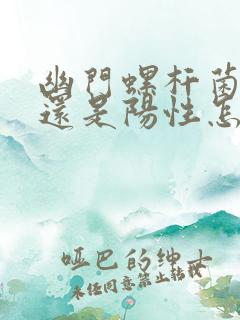 幽門螺杆菌
還是陽性怎
哑巴的绅士
未经同意禁止转载